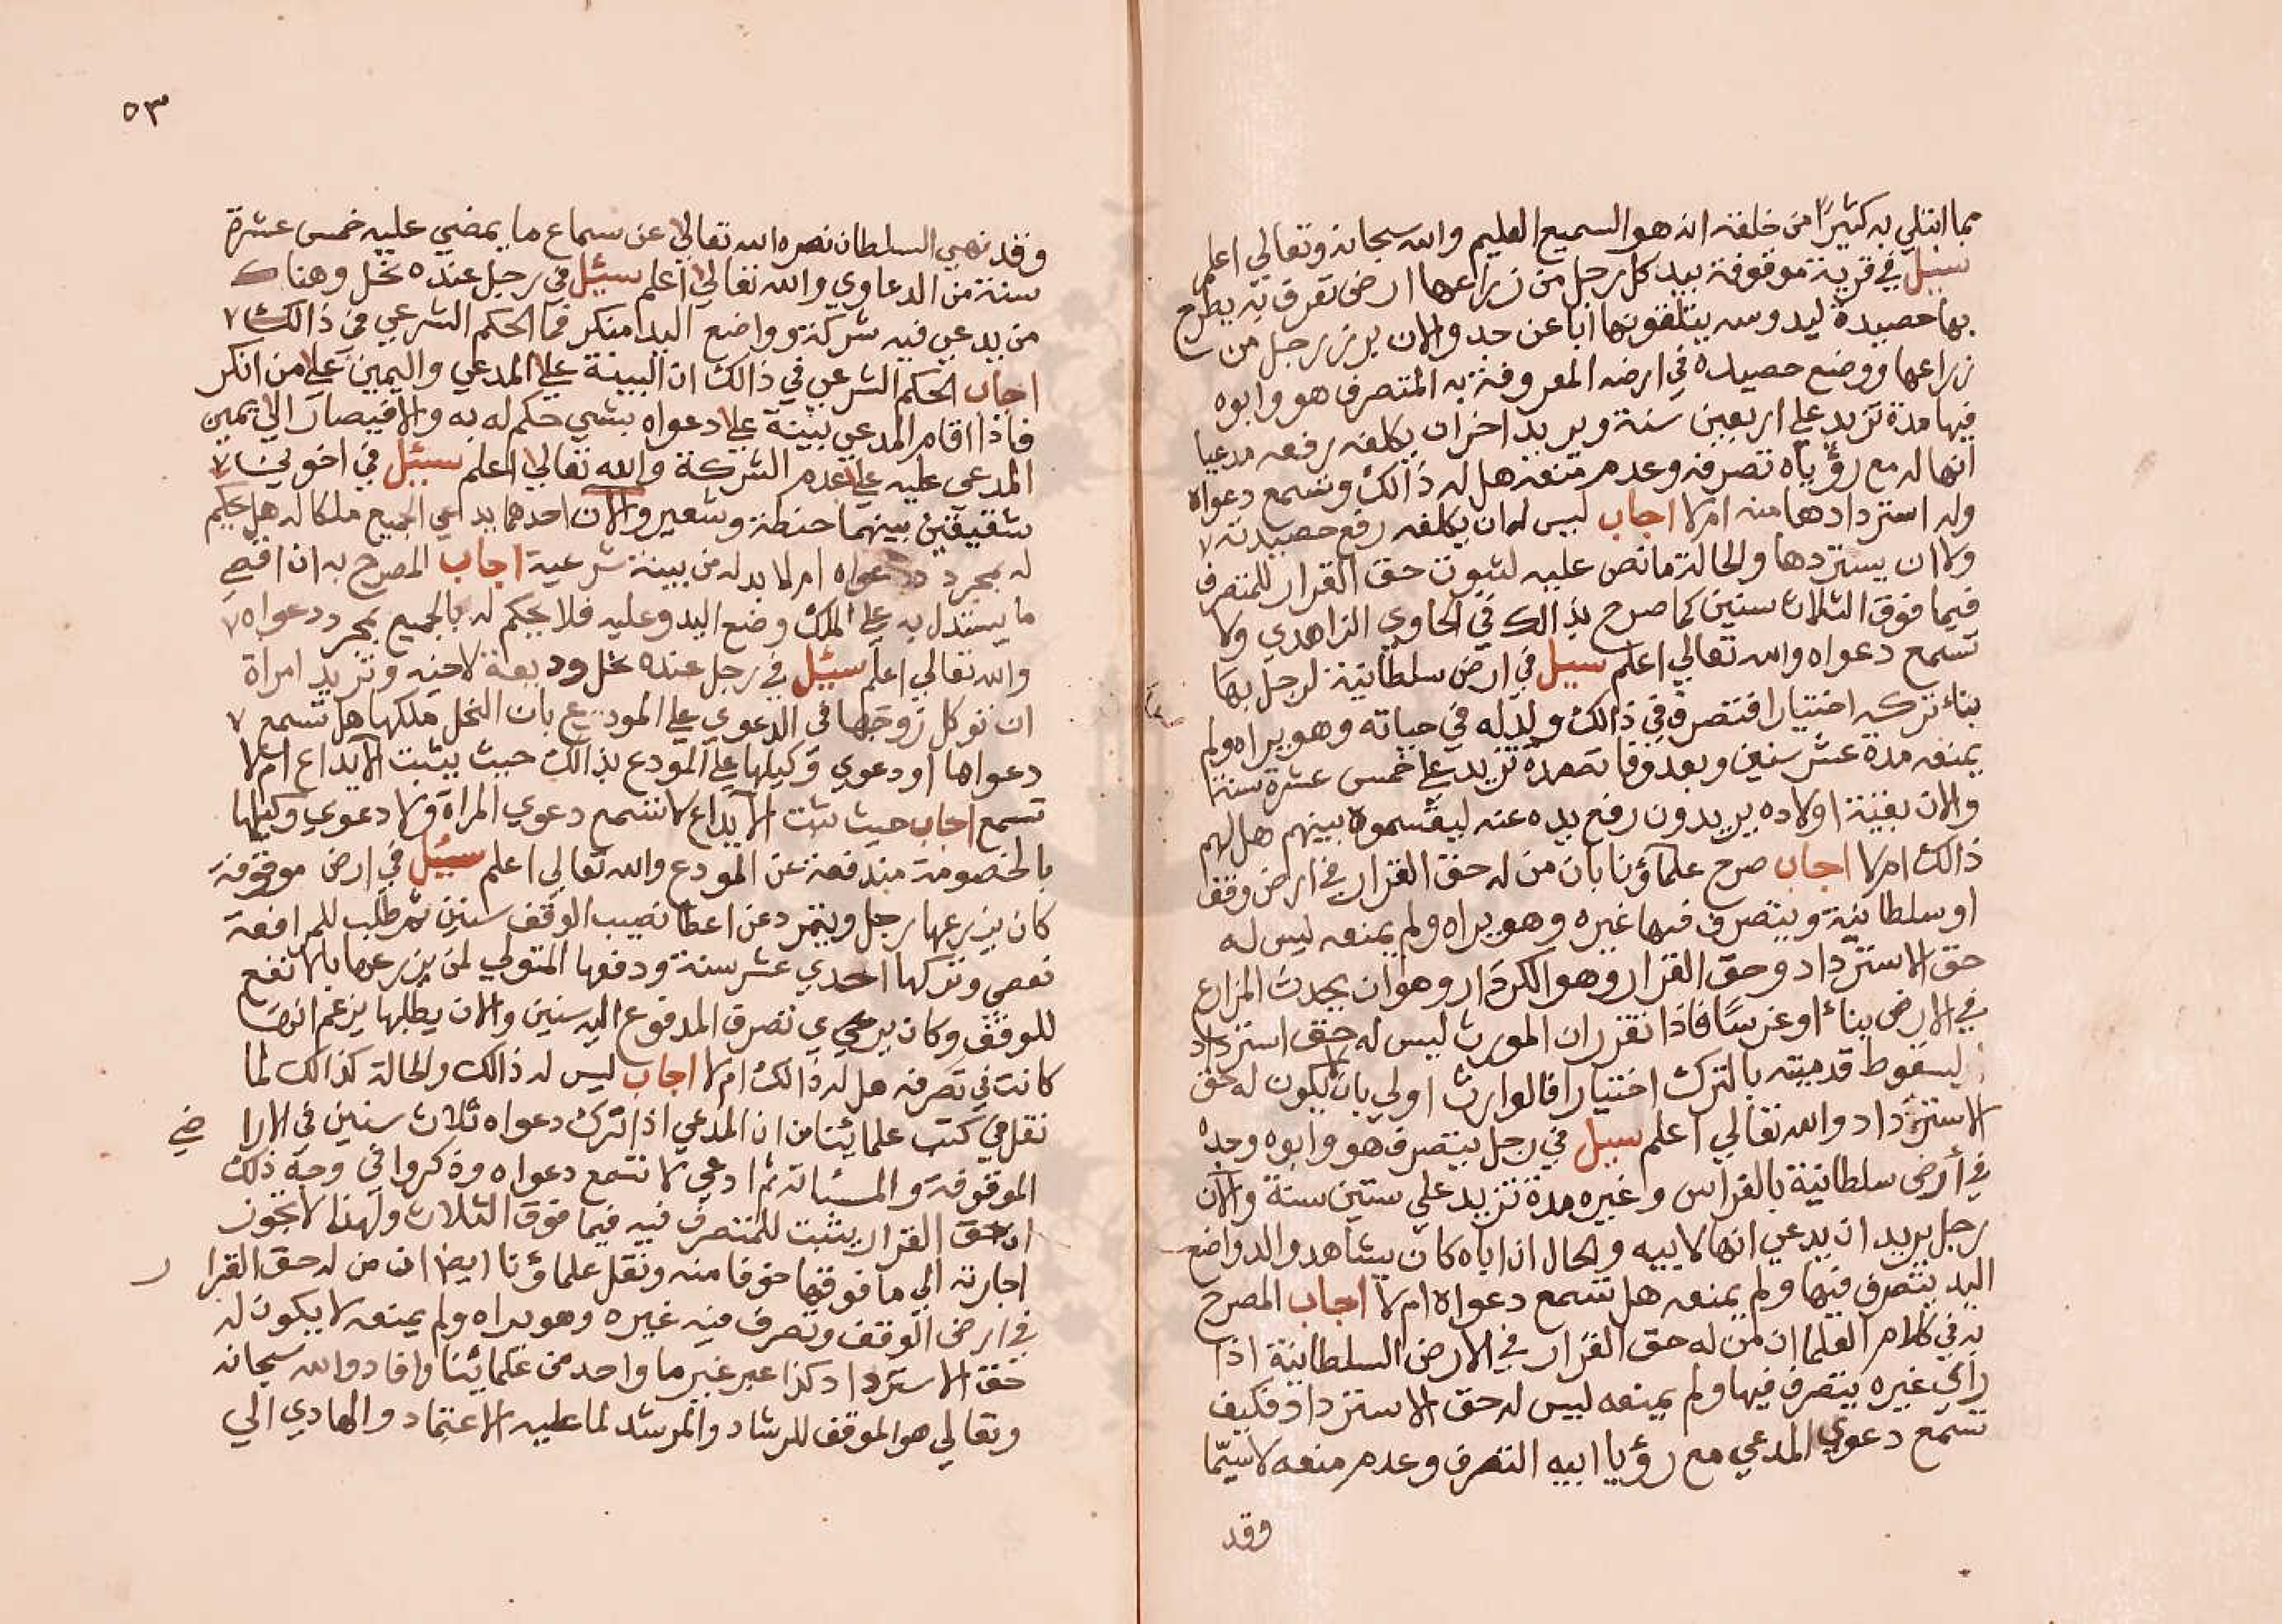 مما ابتلي به كثيرًا من خلقه انه هو السميع العليم والله سبحانه وتعالي اعلم
سيل في قرية موقوفة بيد كل رجل من زراعها ارض تعرف به يطرح
بها حصيدة ليدوسه يتلقونها ابا عن جد والان برز رجل من
زراعها ووضع حصيده في ارضه المعروفة به المتصرف هو وابوه
فيها مدة تزيد علي اربعين سنة ويريد اخران يكلفه رفعه مدعيا
انها له مع رؤياه تصرفه وعدم منعه هل له ذالك وتسمع دعواه
وله استردادها منه ام لا اجاب ليس له ان يكلفه رفع حصيدته
ولا ان يستردها والحالة ما نص عليه لثبوت حق القرار للمتصرف
فيما فوق الثلاث سنين كما صرح بذالك في الحاوي الزاهدي ولا
تسمع دعواه والله تعالي اعلم سيل في ارض سلطانية لرجل بها
بناء تركه اختيارا فتصرف في ذالك ولد له في حياته وهو يراه ولم
يمنعه مدة عشر سنين وبعد وفاته مدة تزيد علي خمس عشرة سنة
والان بقية اولاده يريدون رفع يده عنه ليقسموه بينهم هل لهم
ذالك ام لا اجاب صرح علمآؤنا بان من له حق القرار في ارض وقف
او سلطانية ويتصرف فيها غيره وهو يراه ولم يمنعه ليس له
حق الاسترداد وحق القرار وهو الكردار وهو ان يحدث المزارع
في الارض بناءً او غرسًا فاذا تقرر ان المورث ليس له حق استرداد
لسقوط قدميته بالترك اختيارا فالوارث اولي بان لا يكون له حق
الاسترداد والله تعالي اعلم سيل في رجل يتصرف هو وابوه وجده
في أرض سلطانية بالغراس وغيره مدة تزيد علي ستين سنة والان
رجل يريد ان يدعي انها لابيه والحال ان اباه كان يشاهد والد واضع
اليد يتصرف فيها ولم يمنعه هل تسمع دعواه ام لا اجاب المصرح
به في كلام العلما ان من له حق القرار في الارض السلطانية اذا
راي غيره يتصرف فيها ولم يمنعه ليس له حق الاسترداد فكيف
تسمع دعوي المدعي مع رؤيا ابيه التصرف وعدم منعه لاسيّما
وقد
٥٣
وقد نهي السلطان نصره الله تعالي عن سماع ما يمضي عليه خمس عشرة
سنة من الدعاوي والله تعالي اعلم سيئل في رجل عنده نخل وهناك
من يدعي فيه شركة وواضع اليد منكر فما الحكم الشرعي في ذالك
اجاب الحكم الشرعي في ذالك ان البينة علي المدعي واليمين علي من انكر
فاذا اقام المدعي بينة علي دعواه بشي حكم له به والا فيصار الي يمين
المدعي عليه علي عدم الشركة والله تعالي اعلم سيئل في اخوين
شقيقين بينهما حنطة وشعير والان احدهما يدعي الجميع ملكا له هل يحكم
له بمجرد دعواه ام لابد له من بينة شرعية اجاب المصرح به ان اقصي
ما يستدل به علي الملك وضع اليد وعليه فلا يحكم له بالجميع بمجرد دعواه
والله تعالي اعلم سيئل في رجل عنده نخل وديعة لاخيه وتريد امراة
ان توكل زوجها في الدعوي علي المودع بان النخل ملكها هل تسمع
دعواها او دعوي وكيلها علي المودع بذالك حيث يثبت الايداع ام لا
تسمع اجاب حيث ثبت الايداع لا تسمع دعوي المراة ولا دعوي وكيلها
بالخصومة مندفعة عن المودع والله تعالي اعلم سيئل في ارض موقوفة
كان يزرعها رجل ويتمرد عن اعطا نصيب الوقف سنين ثم طلب للمرافعة
فعصي وتركها احدي عشر سنة ودفعها المتولي لمن يزرعها بالانفع
للوقف وكان يرعي ي تصرف المدفوع اليه سنين والان يطلبها يزعم انها
كانت في تصرفه هل له ذالك ام لا اجاب ليس له ذالك والحالة كذالك لما
نقل في كتب علمائنا من ان المدعي اذا ترك دعواه ثلاث سنين في الارا ضي
الموقوفة والمسئاته ثم ادعي لا تسمع دعواه وذكروا في وجه ذلك
ان حق القرار يثبت للمتصرف فيه فيما فوق الثلاث ولهذا لا تجوز
اجارته الي ما فوقها خوفا منه ونقل علماؤنا ايضا ان من له حق القرا ر
في ارض الوقف وتصرف فيه غيره وهو يراه ولم يمنعه لا يكون له
حق الاسترداد كذا عبر غير ما واحد من علمائنا وافاد والله سبحانه
وتعالي هو الموفق للرشاد والمرشد لما عليه الاعتماد والهادي الي